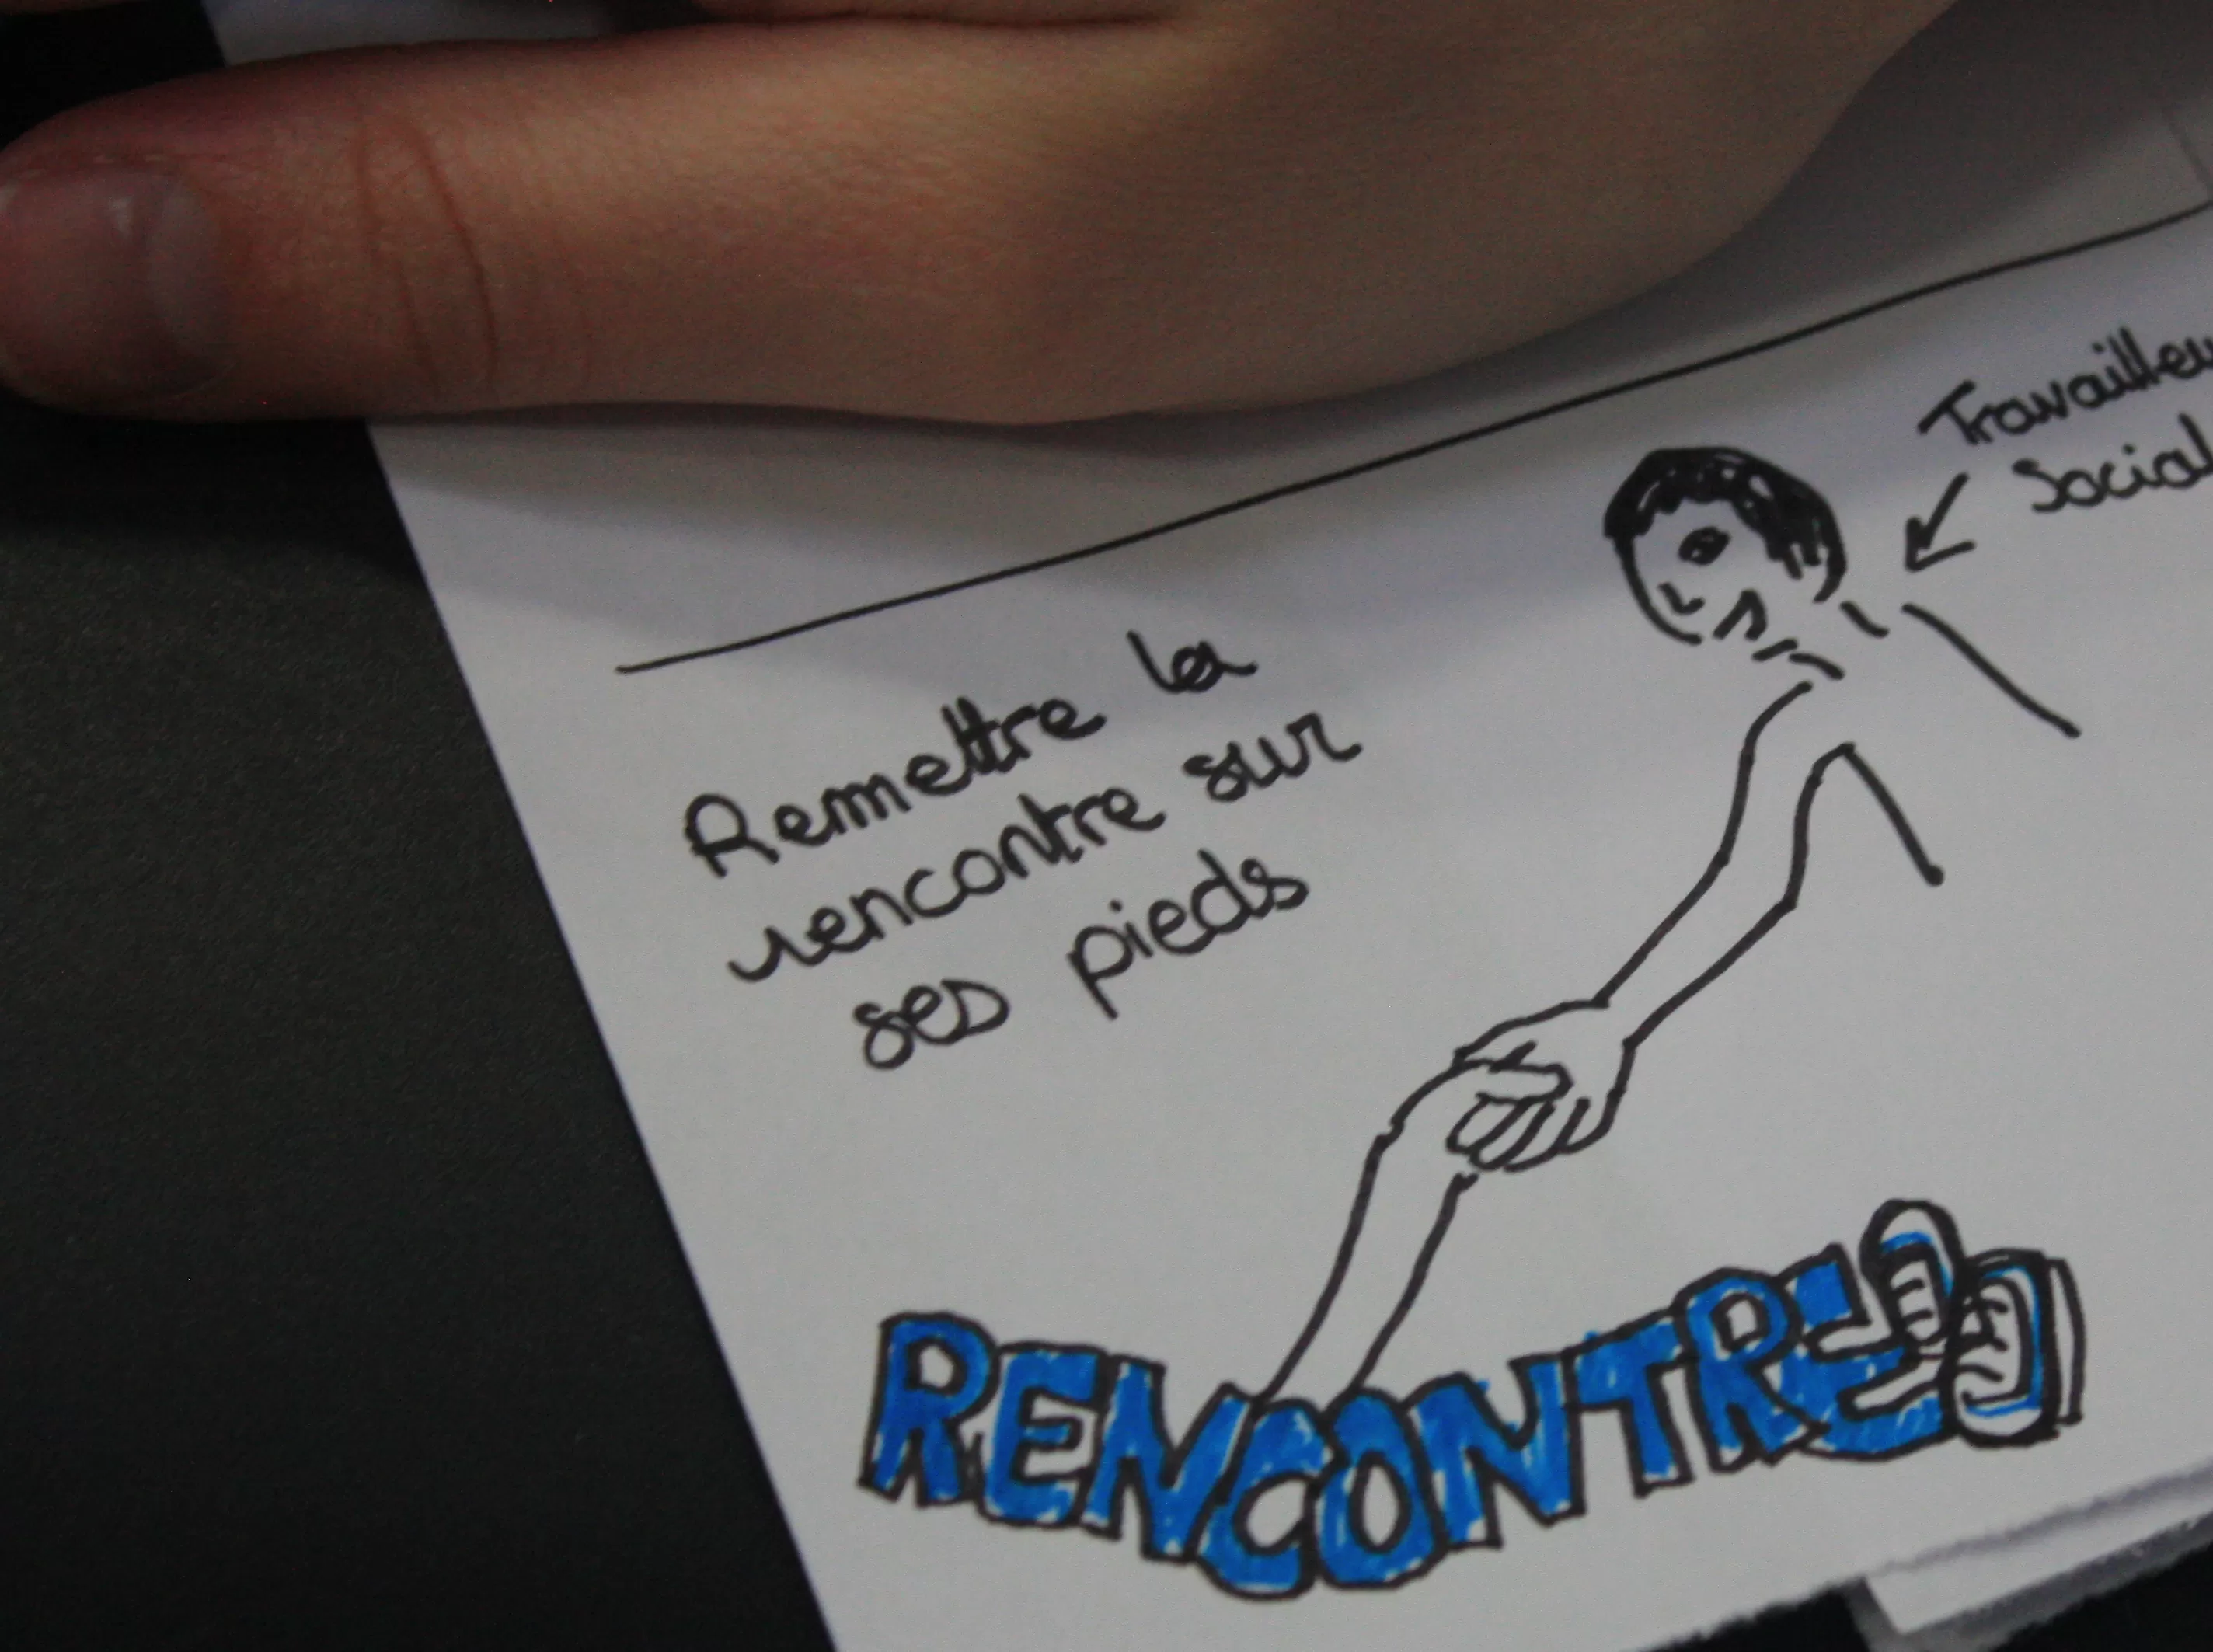 Travailleu
Social
Remettre la
rencontre sur
ses pieds
RENCONTRE